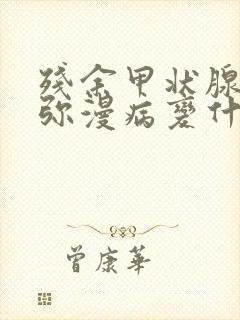 残余甲状腺
弥漫病变什
曾康华